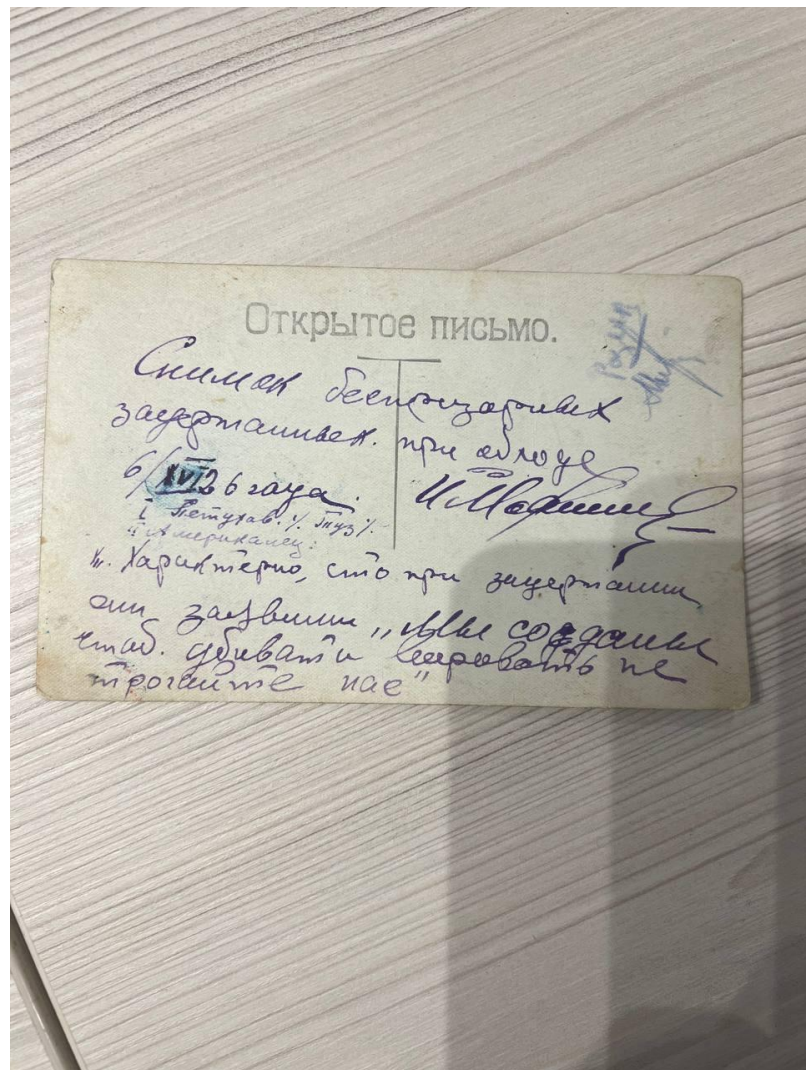 Открытое письмо.
Снимок беспризорных
задержанных при облаве
6/XVI 26 года.
I Петухов. % Туз %.
II Американец.
Характерно, что при задержании
они заявили „Мы созданы
чтоб. убивать и воровать не
трогайте нас"